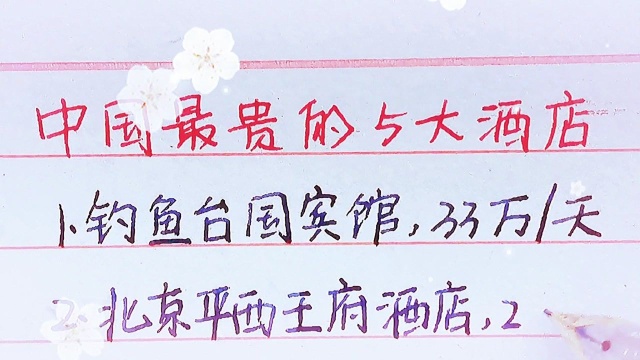 中国最贵的5大酒店
1.钓鱼台国宾馆,33万/天
2.北京平西王府酒店,2